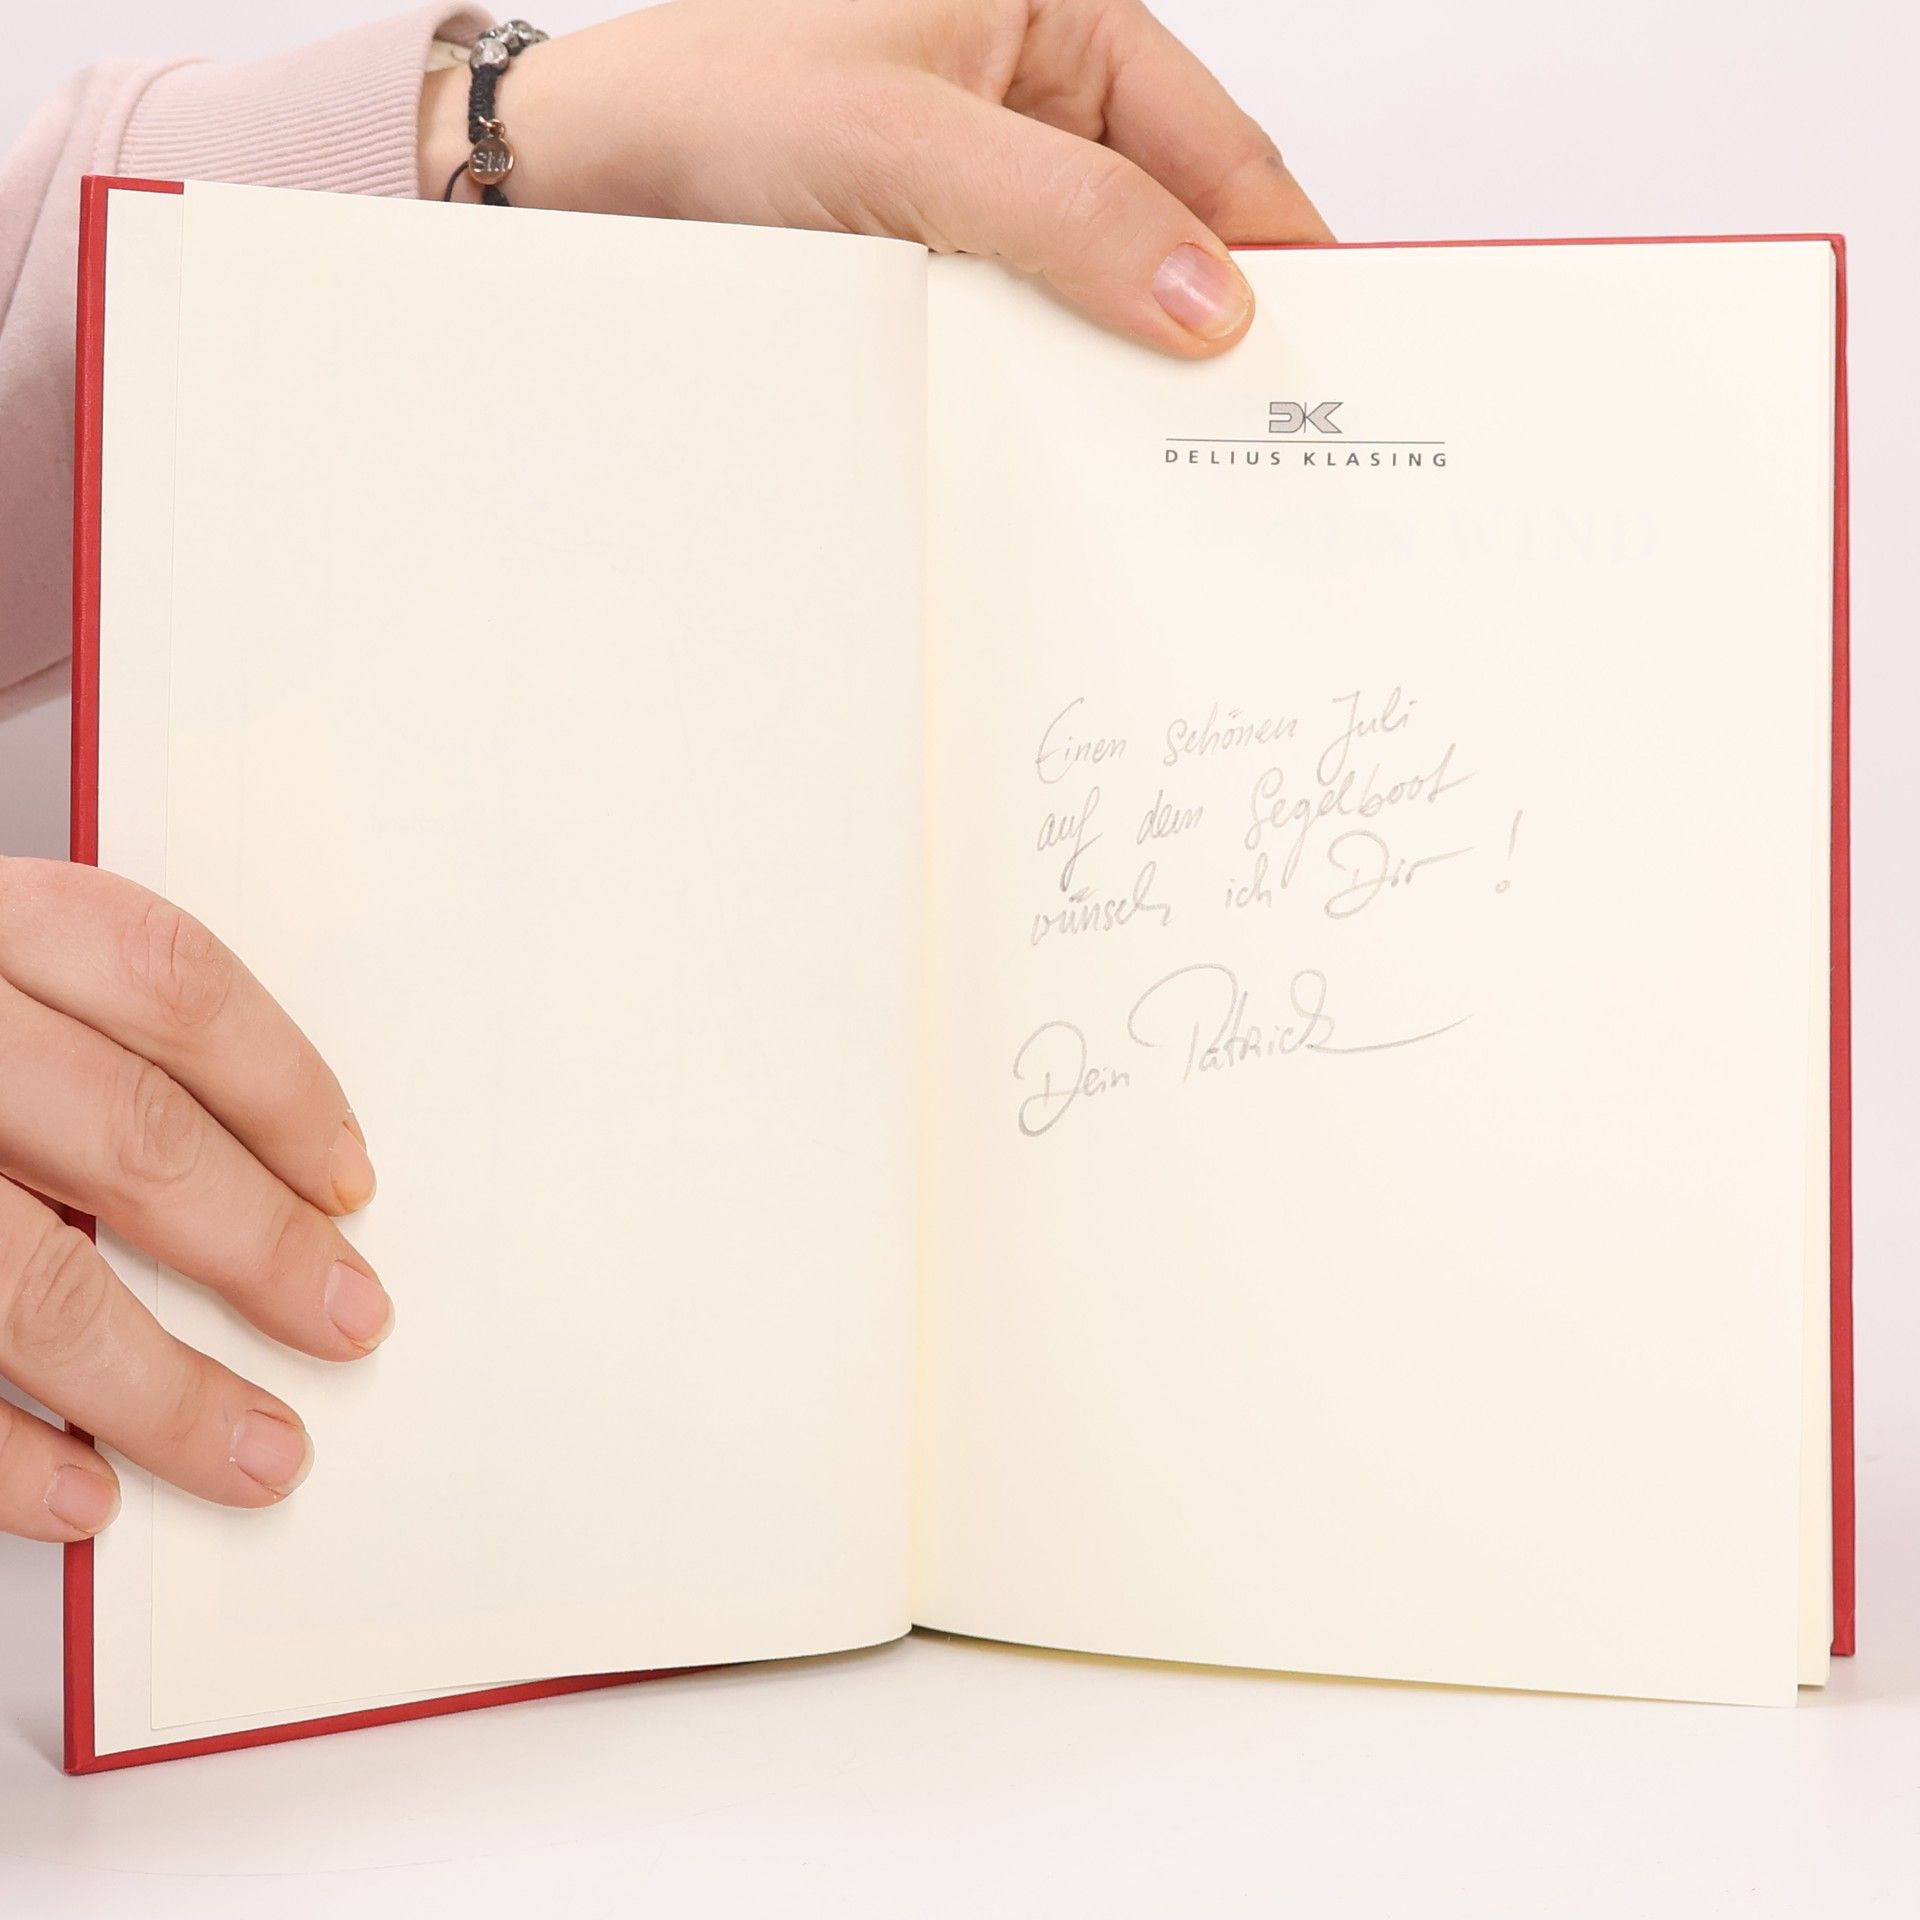 SM
DK
DELIUS KLASING
WIND
Einen schönen Juli
auf dem Segelboot
wünsch ich Dir !
Dein Patrick